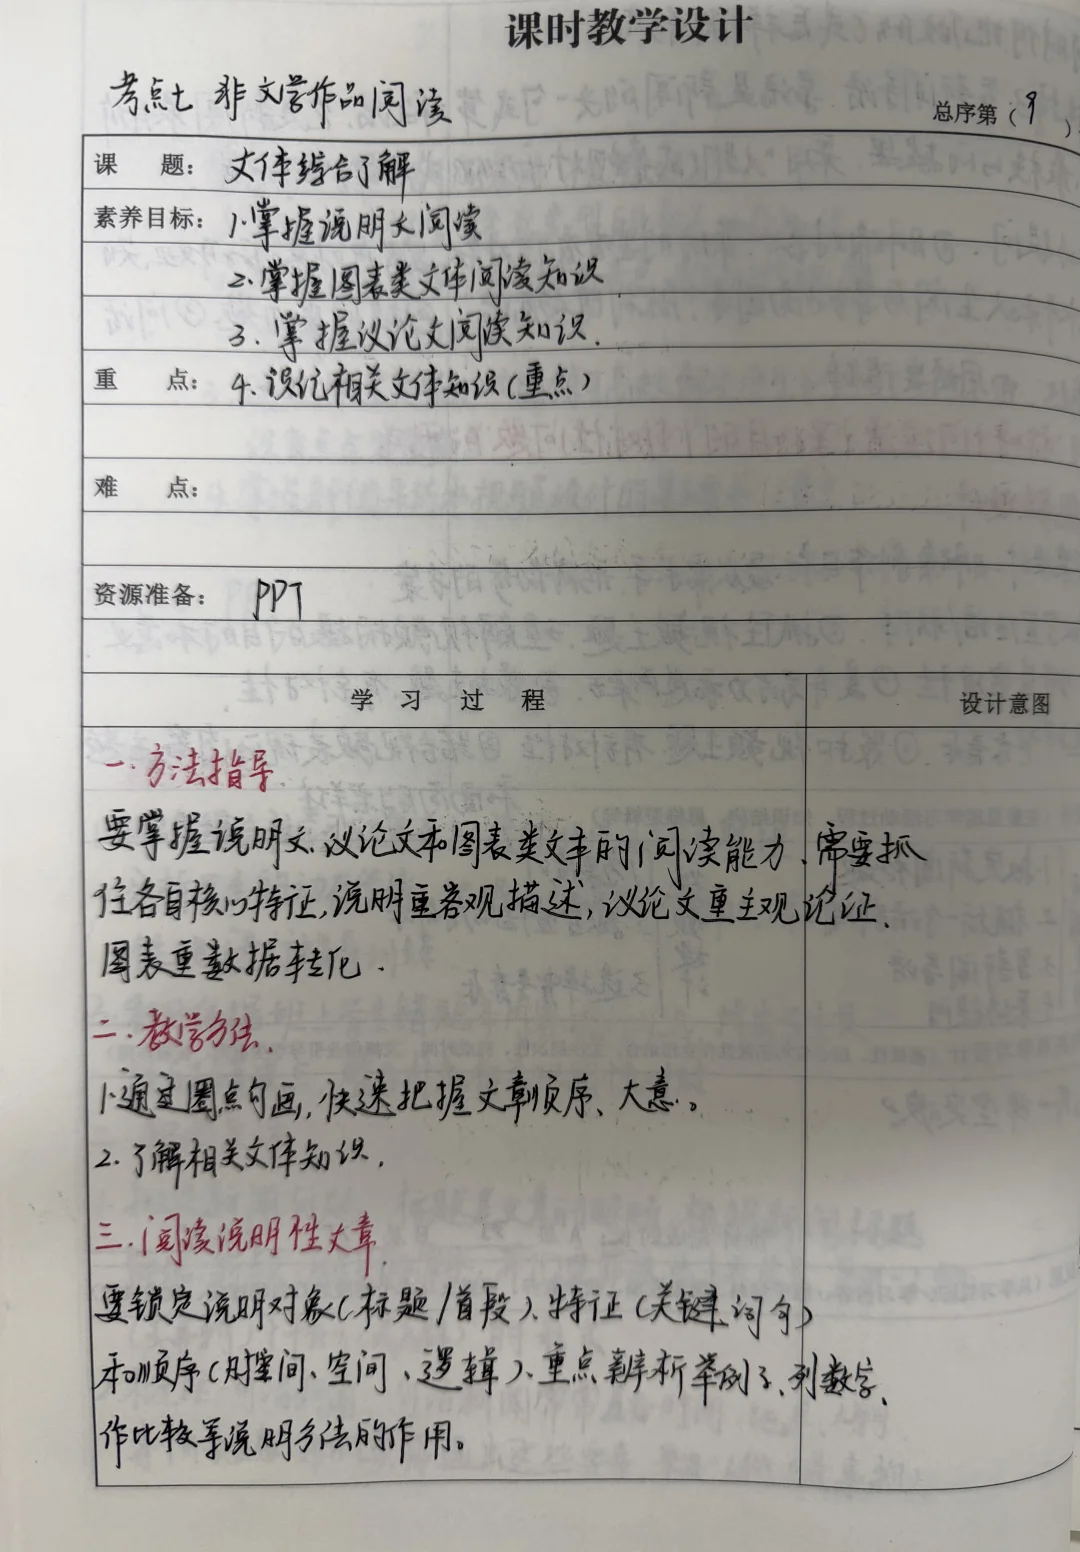 课时教学设计
考点七 非文学作品阅读
总序第(9)
课 题: 文体综合了解
素养目标: 1.掌握说明文阅读
2.掌握图表类文体阅读知识
3.掌握议论文阅读知识.
重 点: 4.识记相关文体知识(重点)
难 点:
资源准备: PPT
学 习 过 程 设计意图
一.方法指导
要掌握说明文、议论文和图表类文本的阅读能力、需要抓
住各自核心特征,说明重客观描述,议论文重主观论证.
图表重数据转化.
二.教学方法.
1.通过圈点勾画,快速把握文章顺序、大意。
2.了解相关文体知识.
三.阅读说明性文章.
要锁定说明对象(标题/首段)、特征(关键词句)
和顺序(时空间、空间、逻辑)、重点辨析举例子、列数字、
作比较等说明方法的作用。